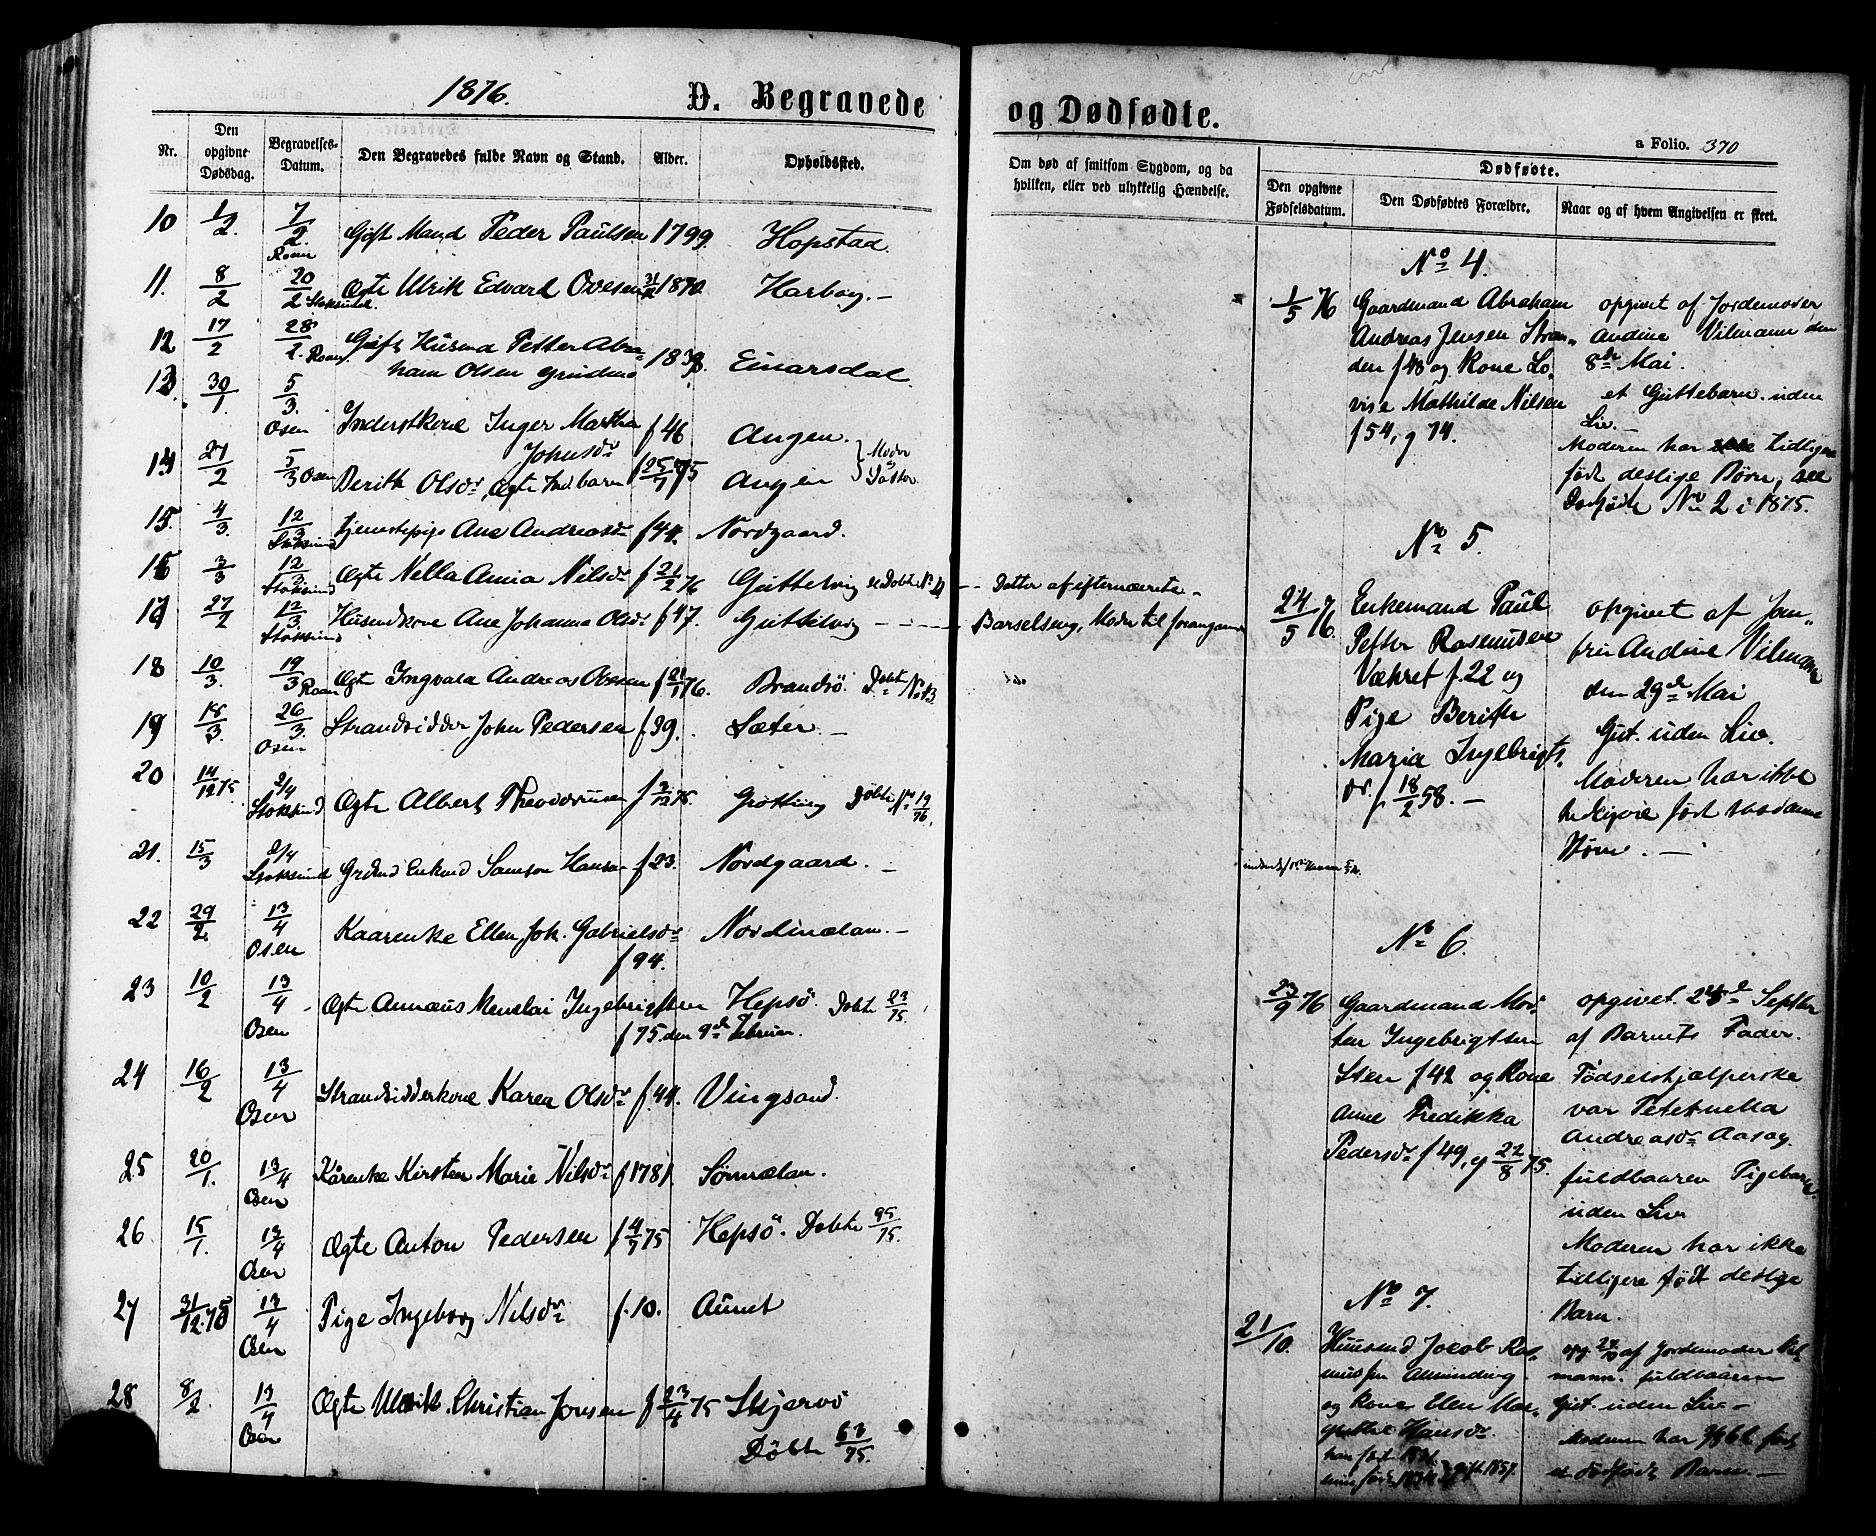 1876.
D. Begravede
Nr.
Den opgivne Dødsdag.
Begravelses-Datum.
Den Begravedes fulde Navn og Stand.
Alder.
Opholdssted.
10 1/2. 7/2. Roan Gift Mand Peder Paulsen 1799. Hopstad.
11. 8/2 20/2 Stoksund Ægte Ulrik Edvard Ovesen 1870. Harbag. —
12 17/2 28/2. Roan Gift Husmd Petter Abra-
ham Olsen 1838. Einarsdal.
13. 30/1. 5/3. Osen Inderstkone Inger Martha
Johnsdr f 46 Angen. } Moder
14 27/2 5/3 Osen Berith Olsdr, Ægte Indbarn f 25/7 75 Angen } Datter
15. 4/3. 12/3 Stoksund Tjenestepige Ane Andreasdr f 44. Nordgaard.
16 3/3 12/3. Stoksund Ægte Nella Annia Nilsdr f 21/2 76 Guttelvig se Døbte No
17 27/2 12/3 Stoksund Husmdkone Ane Johanna Olsdr f 47. Guttelvig
18 10/3. 19/3 Roan Ægte Ingvald Andreas Ovesen f 21/1 76. Brandsö. Døbte No 13.
19 18/3. 26/3. Osen Strandsidder John Pedersen f 39. Sæter. —
20 14/12 75 2/4 Stoksund Ægte Albert Theodorusen f 2/12 75. Grøtting Døbte No 19/76.
21. 15/3 2/4 Stoksund Grdmd Enkmd Samson Hansen f 23. Nordgaard. —
22 29/2. 13/4 Osen Kaarenke Ellen Joh. Gabrielsdr
f 94. Nordmælan. —
23 10/2 13/4 Osen Ægte Annæus Menelai Ingebrigtsen
f 75. den 9de Februar. Hepsö. Døbte 23/75.
24 16/2 13/4 Osen Strandsidderkone Karen Olsdr f. 44. Vingsand.
25 20/1. 13/4 Osen Kårenke Kirsten Marie Nilsdr f 1781. Sørmælan.
26 15/1. 13/4 Osen Ægte Anton Pedersen f 4/7 75 Hepsö. Døbte 95/75.
27 31/12. 75 13/4 Osen Pige Ingeborg Nilsdr f. 10. Aunet
28 8/2. 13/4 Osen Ægte Ulrik Christian Jonsen f 23/4 75 Skjervö
Døbte 63/75.
og Dødfødte.
a Folio. 370
Om død af smitsom Sygdom, og da
hvilken, eller ved ulykkelig Hændelse.
Dødfødte.
Den opgivne Fødselsdatum.
Den Dødfødtes Forældre.
Naar og af hvem Angivelsen er skeet.
Datter af efternævnte
Barselseng, Moder til foregaaende
No 4.
1/5 76
Gaardmand Abraham
Andreas Jensen Stran-
den f 48 og Kone Lo-
vise Mathilde Nilsen
f 54, g 74.
opgivet af Jordemoder
Andine Vilmann den
8de Mai.
et Guttebarn uden
Liv. —
Moderen har tidligere
født deslige Børn, see
Dødfødte No 2 i 1875.
No 5.
24/5 76.
Enkemand Paul
Petter Rasmusen
Vækret f. 22 og
Pige Berith
Maria Ingebrigts-
dr. f 18/2 58. —
opgivet af Jom-
fru Andine Vilmann
den 29de Mai
Gut. uden Liv.
Moderen har ikke
tidligere født saadanne
Børn. —
No 6.
23/9 76
Gaardmand Mor-
ten Ingebrigtsen
Sten f 42 og Kone
Anne Fredikka
Pedersdr f 49, g 22/8 75.
opgivet 24de Septbr
af Barnets Fader.
Fødselshjælperske
var Petternella
Andreasdr Aasag.
fuldbaaren Pigebarn
uden Liv
Moderen har ikke
tidligere født deslige
Barn.
No 7.
21/10.
Huusmd Jacob Ras-
mussen Almending
og Kone Elen Mar-
grethe Hansdr
opg. af Jordemoder Vil-
mann. fuldbaaren
Gut. uden Liv —
Moderen har 1866 født
et dødfødt Barn. —